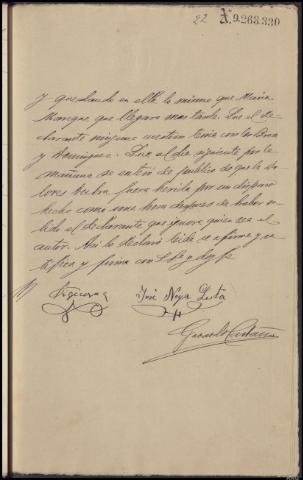 22 A.9.263.330
y quedando en ella lo mismo que María
que llegara mas tarde. Que el de
clarante ninguna cuestion tenia con
y Dominguez. Que el dia siguiente por la
mañana se enteró de publico de que la Do
lores fuera herida por un disparo
hecho como una hora despues de haber sa
lido el declarante que ignora quien sea el
autor. Asi lo declaró leido se afirma y ra
tifica y firma con S. Sª y doy fe
Figueroa José
Gerardo